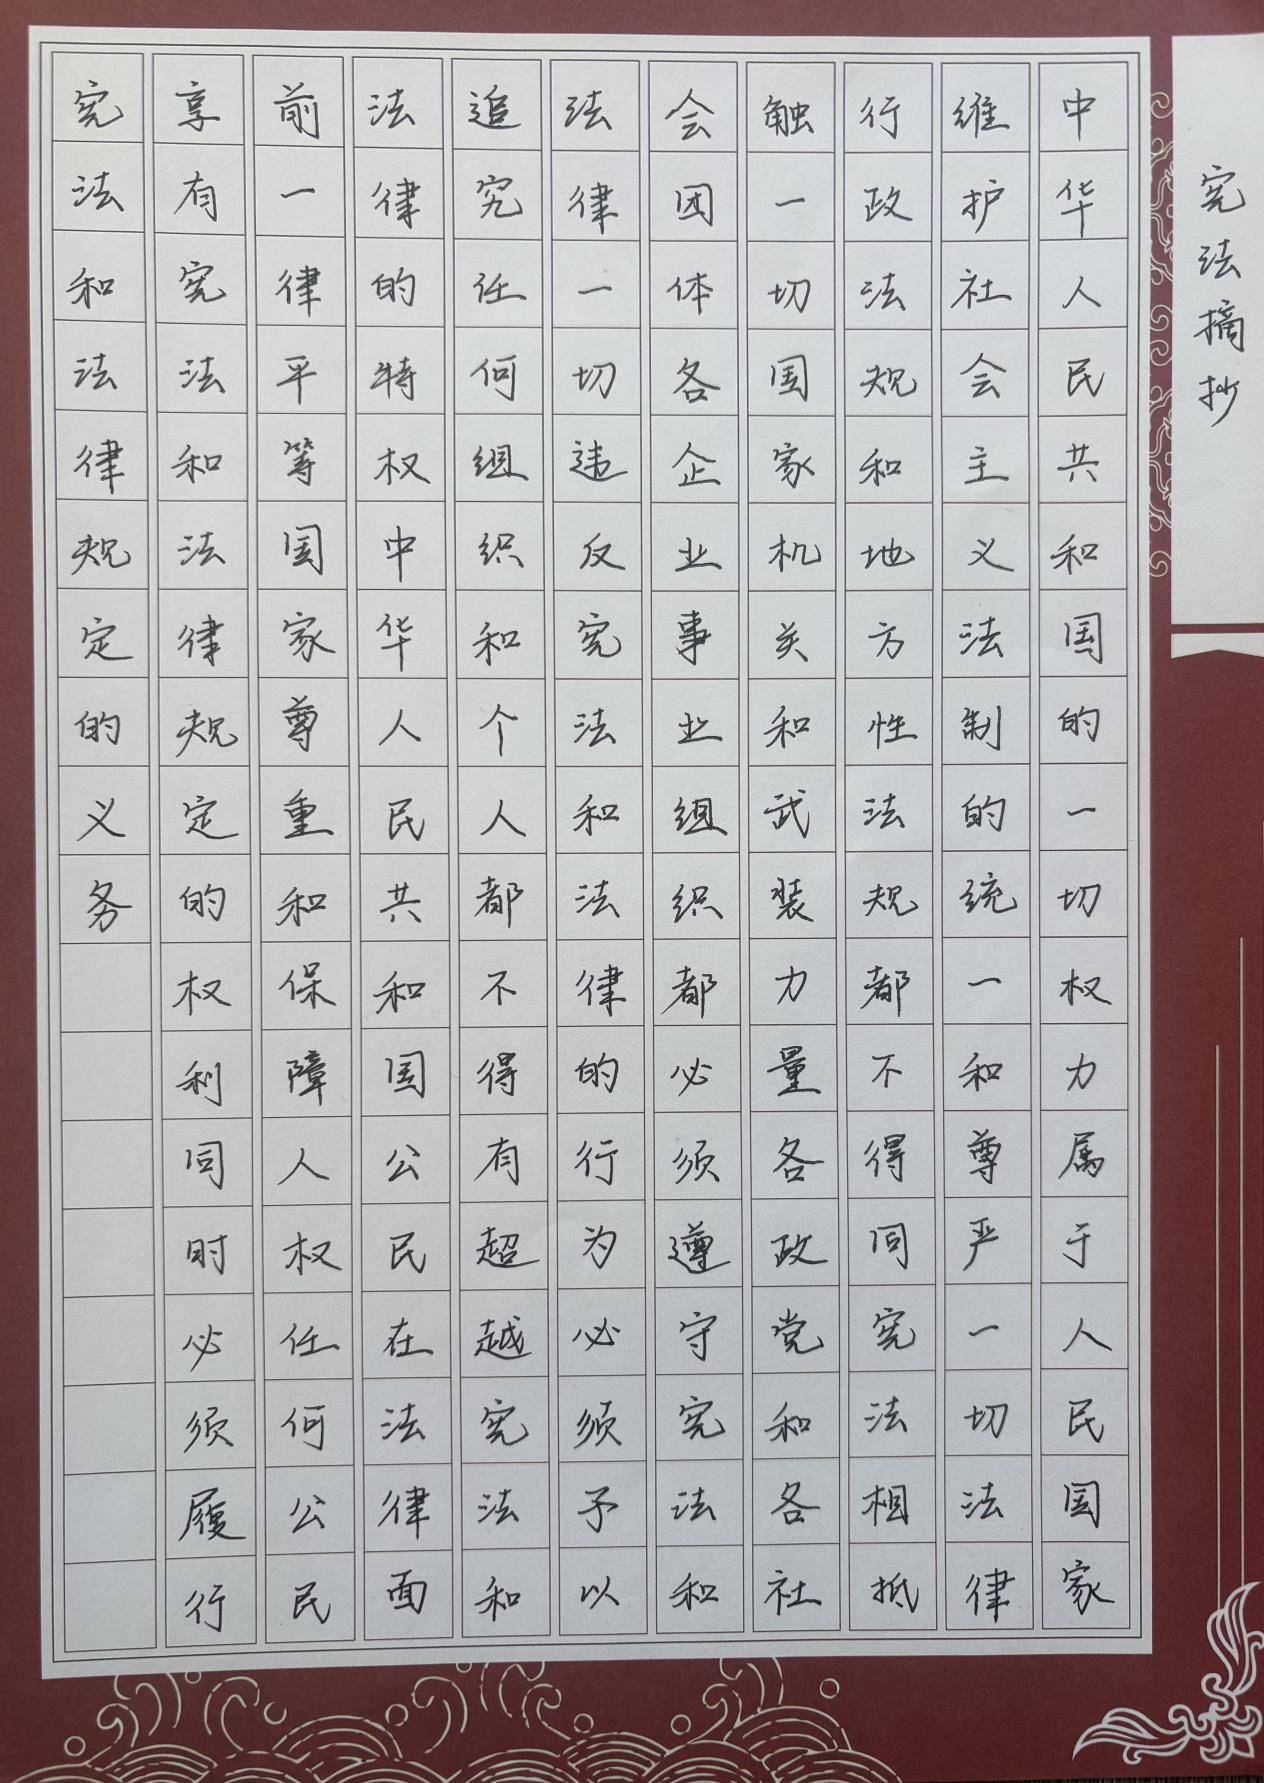 宪法摘抄
中华人民共和国的一切权力属于人民国家
维护社会主义法制的统一和尊严一切法律
行政法规和地方性法规都不得同宪法相抵
触一切国家机关和武装力量各政党和各社
会团体各企业事业组织都必须遵守宪法和
法律一切违反宪法和法律的行为必须予以
追究任何组织和个人都不得有超越宪法和
法律的特权中华人民共和国公民在法律面
前一律平等国家尊重和保障人权任何公民
享有宪法和法律规定的权利同时必须履行
宪法和法律规定的义务